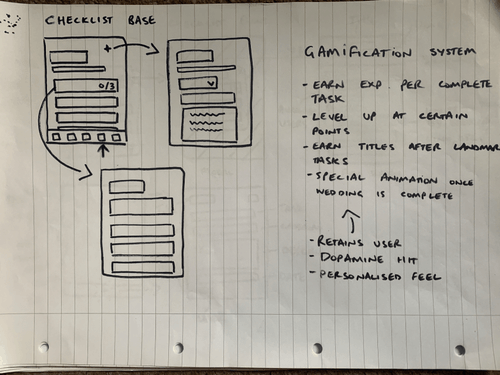 CHECKLIST BASE
+
0/3
GAMIFICATION SYSTEM
- EARN EXP. PER COMPLETE
TASK
- LEVEL UP AT CERTAIN
POINTS
- EARN TITLES AFTER LANDMARK
TASKS
- SPECIAL ANIMATION ONCE
WEDDING IS COMPLETE
- RETAINS USER
- DOPAMINE HIT
- PERSONALISED FEEL